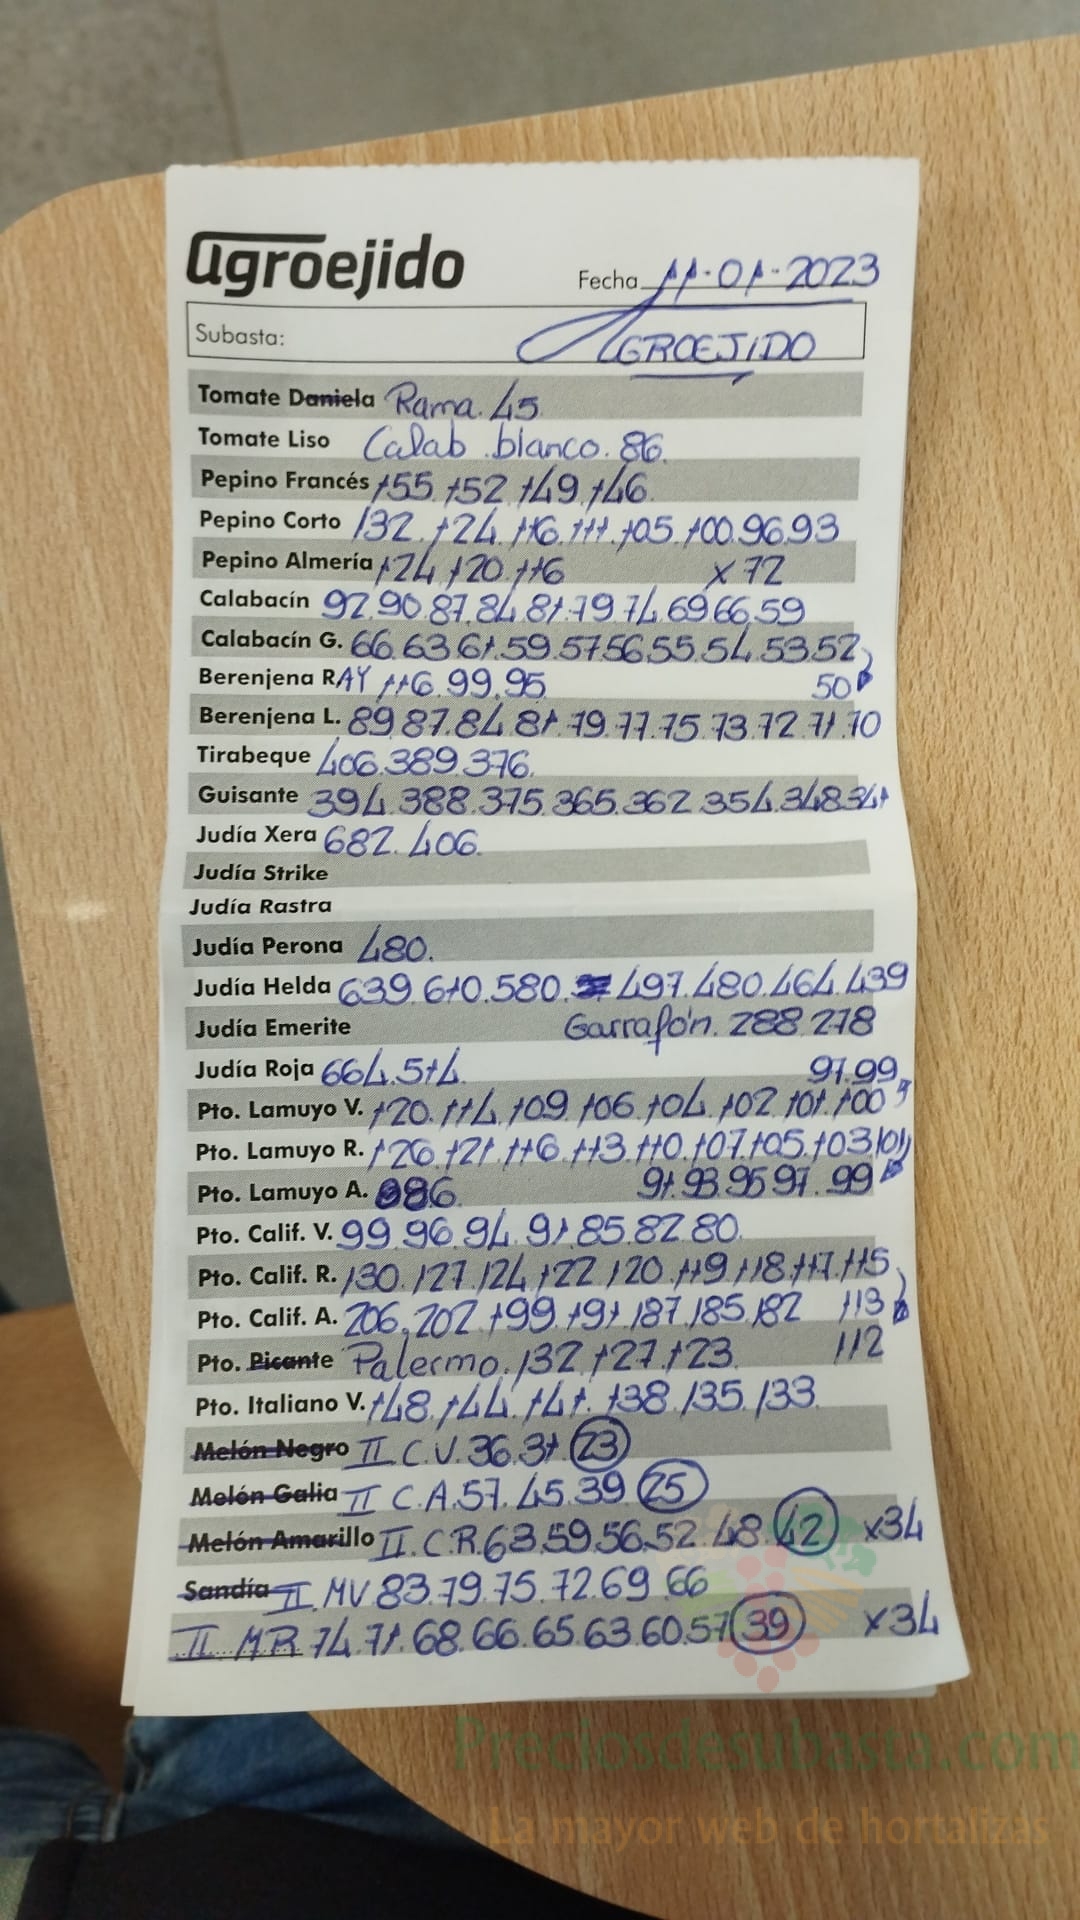 agroejido
Fecha 11-01-2023
Subasta: AGROEJIDO
Tomate Daniela Rama. 45
Tomate Liso Calab. blanco. 86.
Pepino Francés 155. 152 149 146
Pepino Corto 132. 124. 116. 111. 105. 100. 96. 93
Pepino Almería 124 120. 116 x 72
Calabacín 92. 90. 87. 84. 81. 79 74. 69 66. 59
Calabacín G. 66. 63 61. 59. 57 56 55. 54. 53 52
Berenjena RAY 116. 99. 95 50
Berenjena L. 89. 87. 84. 81. 79. 77. 75. 73. 72. 71. 70
Tirabeque 406. 389. 376.
Guisante 394. 388. 375. 365. 362. 354. 348. 341
Judía Xera 682. 406.
Judía Strike
Judía Rastra
Judía Perona 480.
Judía Helda 639. 610. 580. 497. 480. 464. 439
Judía Emerite Garrafón. 288. 278
Judía Roja 664. 514. 97. 99
Pto. Lamuyo V. 120. 114. 109. 106. 104. 102 101. 100
Pto. Lamuyo R. 126. 121. 116. 113. 110. 107. 105. 103. 101
Pto. Lamuyo A. 86. 91. 93. 95 97. 99
Pto. Calif. V. 99. 96. 94. 91. 85. 82. 80.
Pto. Calif. R. 130. 127. 124. 122. 120. 119. 118. 117. 115
Pto. Calif. A. 206. 202 199. 191. 187. 185. 182 113
Pto. Picante Palermo. 132. 127. 123. 112
Pto. Italiano V. 148. 144. 141. 138. 135. 133.
Melón Negro II C.V. 36. 31 23
Melón Galia II C.A. 57. 45. 39 25
Melón Amarillo II. C.R. 63. 59. 56. 52. 48. 42 x34
Sandía II. MV. 83. 79. 75. 72. 69. 66
II MR 74. 71. 68. 66. 65. 63. 60. 57 39 x34
Preciosdesubasta.com
La mayor web de hortalizas